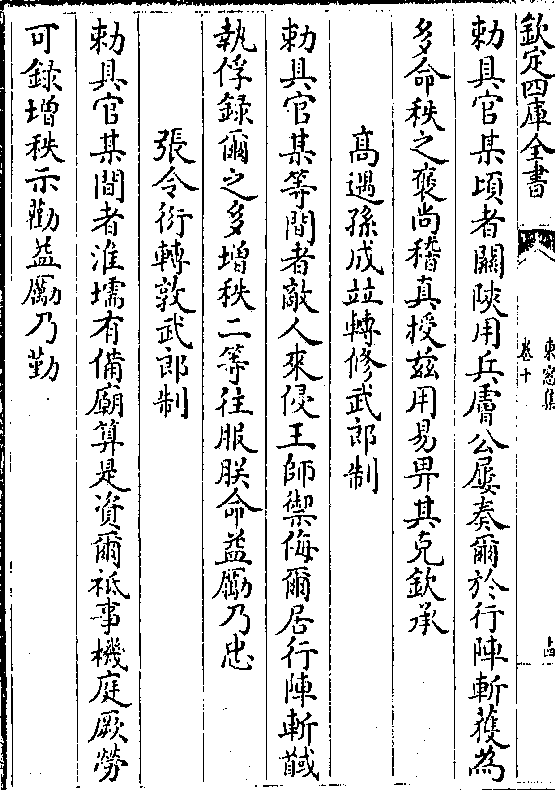 欽定四庫全書
東窗集
卷十
十四
勅具官某頃者關陜用兵膚公屢奏爾於行陣斬獲為
多命秩之褒尚稽真授兹用易畀其克欽承
高遇孫成並轉修武郎制
勅具官某等間者敵人來侵王師禦侮爾居行陣斬馘
執俘録爾之多增秩二等往服朕命益勵乃忠
張令衍轉敦武郎制
勅具官某間者淮壖有備廟算是資爾祗事機庭厥勞
可録增秩示勸益勵乃勤